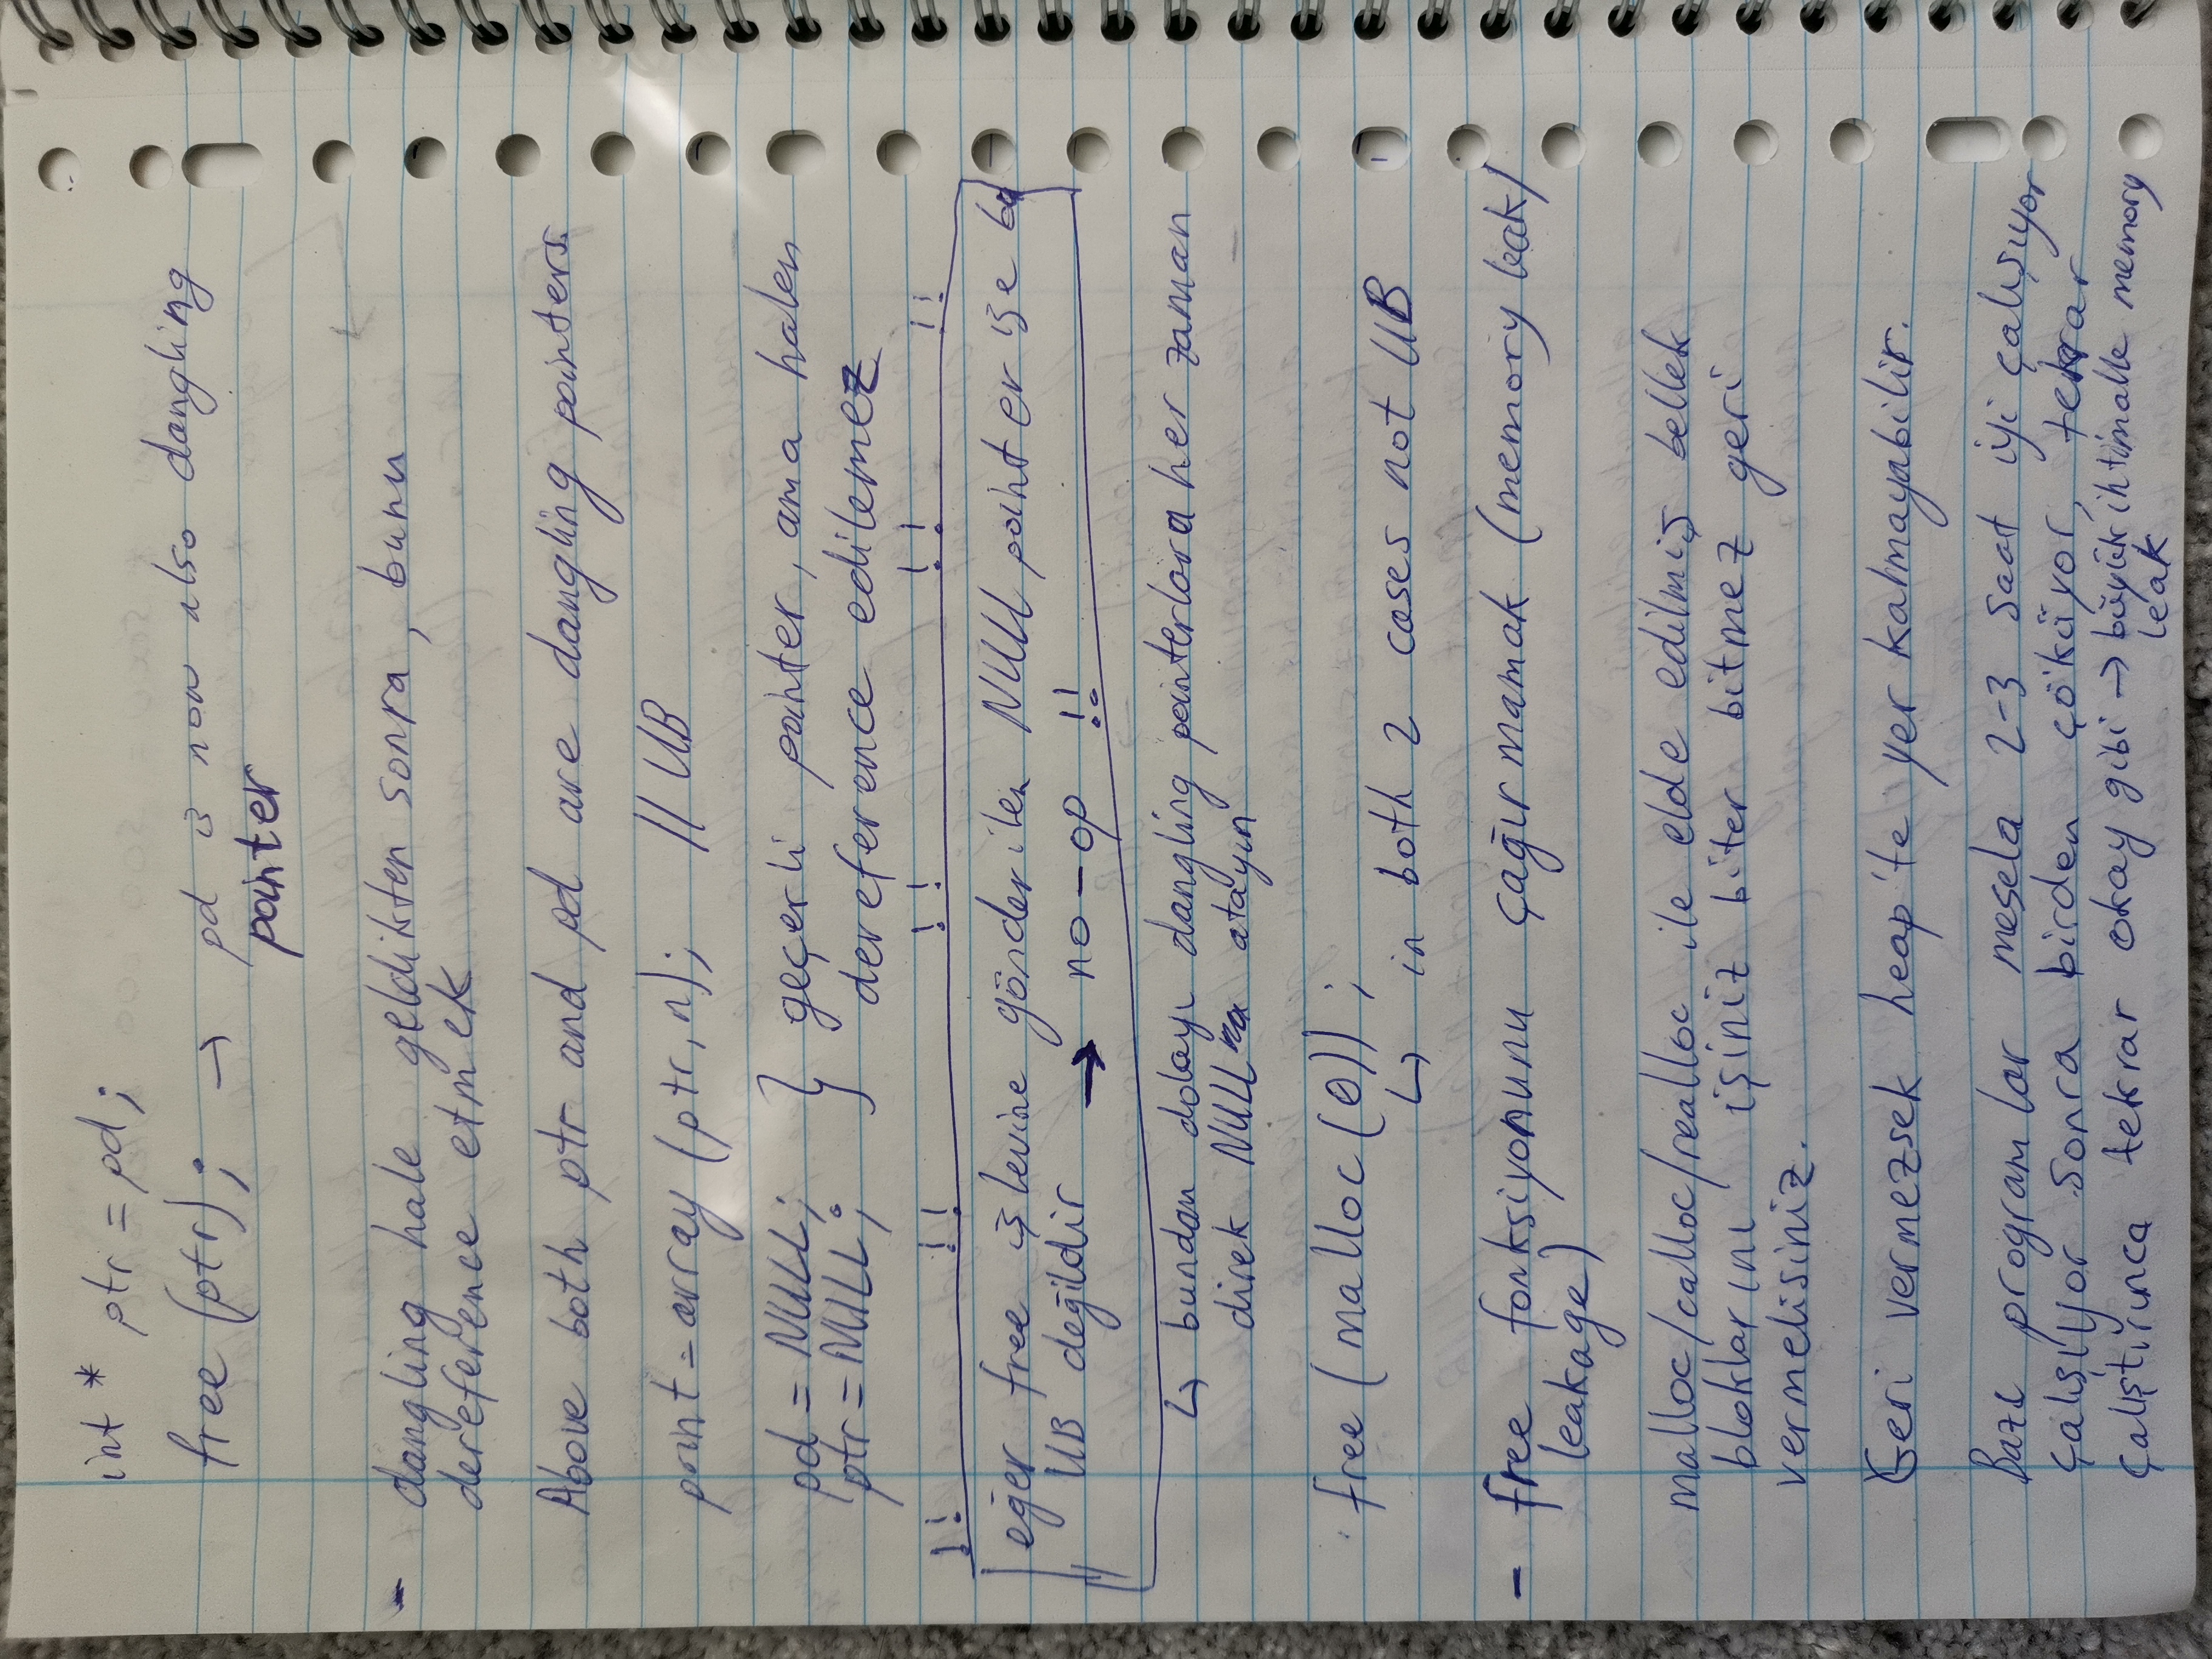 int * ptr = pd;
free (ptr); → pd is now also dangling
pointer
- dangling hale geldikten sonra, bunu
dereference etmek
Above both ptr and pd are dangling pointers.
print_array (ptr, n); // UB
pd = NULL; } geçerli pointer, ama halen
ptr = NULL; } dereference edilemez
!! !! !! !! !!
eğer free işlevine gönderilen NULL pointer ise bu
UB değildir → no-op !!
↳ bundan dolayı dangling pointerlara her zaman
direk NULL atayın
free (malloc (0));
↳ in both 2 cases not UB
- free fonksiyonunu çağırmamak (memory leak/
leakage)
malloc/calloc/realloc ile elde edilmiş bellek
bloklarını işiniz biter bitmez geri
vermelisiniz.
Geri vermezsek heap'te yer kalmayabilir.
Bazı programlar mesela 2-3 saat iyi çalışıyor
çalışıyor sonra birden çöküyor, tekrar
çalıştırınca tekrar okay gibi → büyük ihtimalle memory
leak